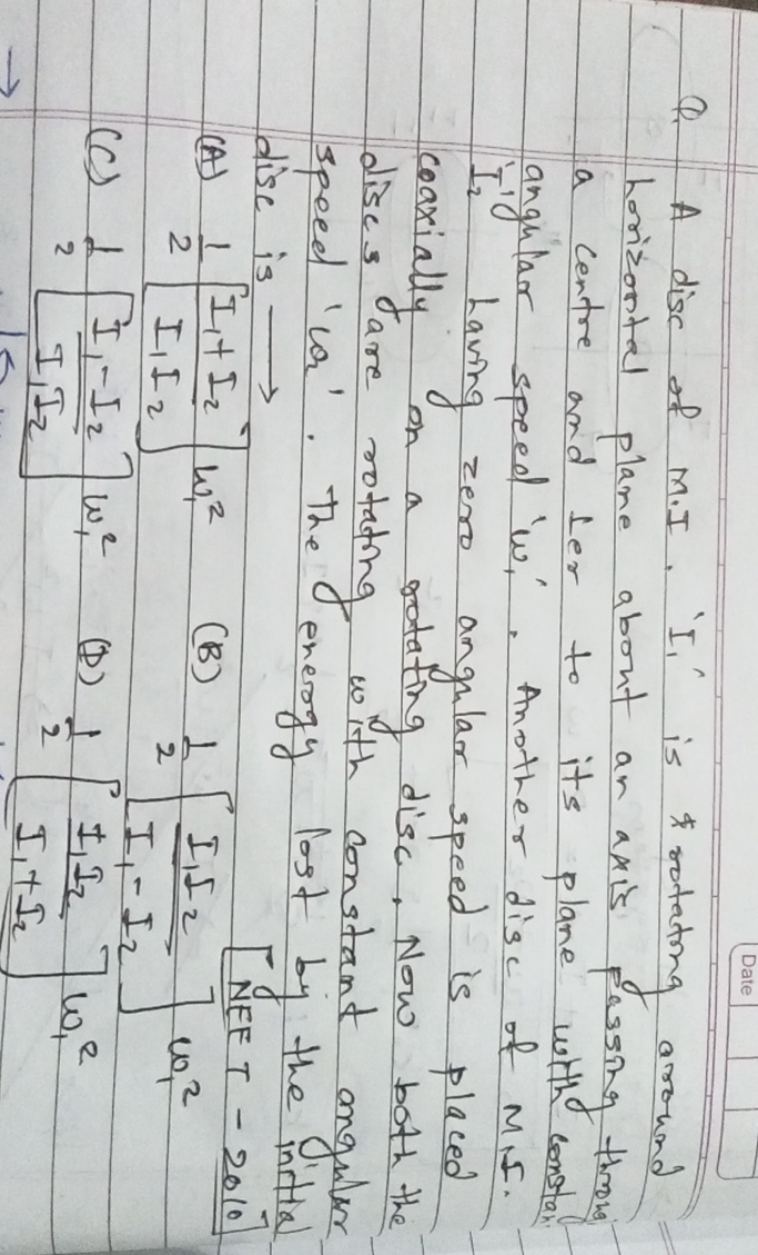 Date
Q. A disc of M.I. 'I₁' is rotating around
horizontal plane about an axis passing throug
a centre and Ler to its plane with constan
angular speed 'ω₁'. Another disc of M.I.
'I₂' having zero angular speed is placed
coaxially on a rotating disc. Now both the
discs are rotating with constant angular
speed 'ω'. The energy lost by the initial
disc is →
[NEET - 2010]
(A) 1/2 [I₁+I₂ / I₁I₂] ω₁² (B) 1/2 [I₁I₂ / I₁-I₂] ω₁²
(C) 1/2 [I₁-I₂ / I₁I₂] ω₁² (D) 1/2 [I₁I₂ / I₁+I₂] ω₁²
→